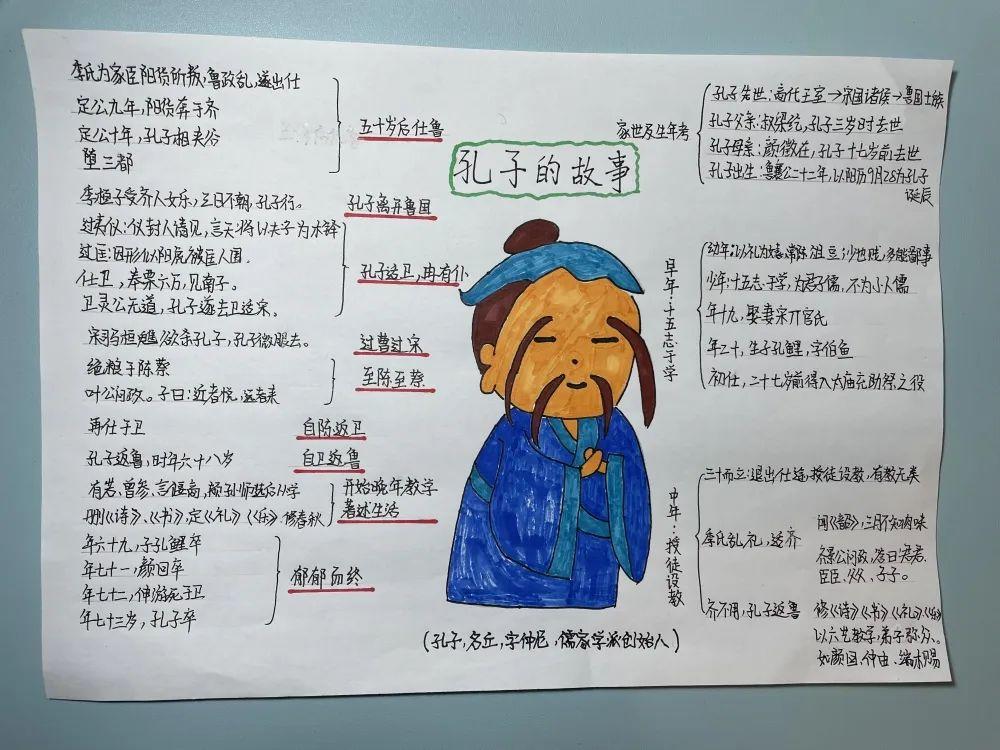 孔子的故事
家世及生年考
孔子先世：商代王室→宋国诸侯→鲁国士族
孔子父亲：叔梁纥，孔子三岁时去世
孔子母亲：颜徵在，孔子十七岁前去世
孔子出生：鲁襄公二十二年，以阳历9月28为孔子
诞辰
早年·十五志于学
幼年：以礼为嬉，常陈俎豆；少也贱，多能鄙事
少年：十五志于学，为君子儒，不为小人儒
年十九，娶妻宋亓官氏
年二十，生子孔鲤，字伯鱼
初仕，二十七岁前得入太庙充助祭之役
中年·授徒设教
三十而立：退出仕途，授徒设教，有教无类
季氏乱礼，适齐
闻《韶》，三月不知肉味
齐景公问政，答曰：君君、
臣臣、父父、子子。
齐不用，孔子返鲁
修《诗》《书》《礼》《乐》
以六艺教学，弟子弥众。
如颜回、仲由、端木赐
五十岁后仕鲁
季氏为家臣阳货所叛，鲁政乱，遂出仕
定公九年，阳货奔于齐
定公十年，孔子相夹谷
堕三都
孔子离开鲁国
季桓子受齐人女乐，三日不朝，孔子行。
孔子适卫，冉有仆
过仪：仪封人请见，言天将以夫子为木铎
过匡：因形似阳虎被匡人围。
仕卫，奉粟六万，见南子。
卫灵公无道，孔子遂去卫适宋。
过曹过宋
宋司马桓魋欲杀孔子，孔子微服去。
至陈至蔡
绝粮于陈蔡
叶公问政。子曰：近者悦，远者来
自陈返卫
再仕于卫
自卫返鲁
孔子返鲁，时年六十八岁
开始晚年教学
著述生活
有若、曾参、言偃、卜商、颛孙师进后从学
删《诗》、《书》，定《礼》《乐》，修春秋
郁郁而终
年六十九，子孔鲤卒
年七十一，颜回卒
年七十二，仲由死于卫
年七十三岁，孔子卒
（孔子，名丘，字仲尼，儒家学派创始人）